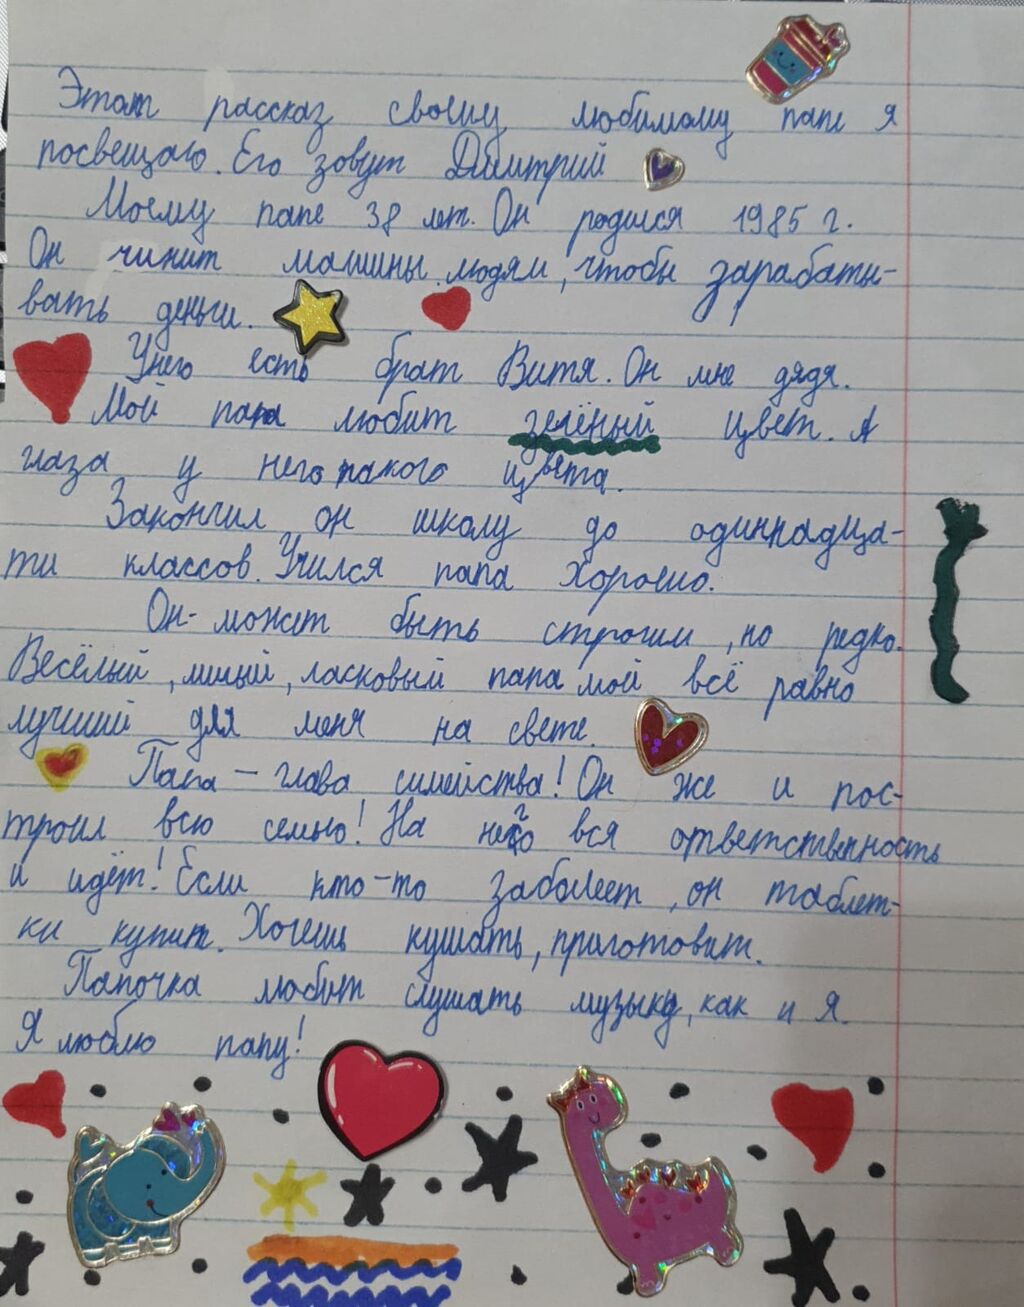 Этот рассказ своему любимому папе я
посвещаю. Его зовут Дмитрий
Моему папе 38 лет. Он родился 1985 г.
Он чинит машины людям, чтобы зарабаты-
вать деньги.
Унего есть брат Витя. Он мне дядя.
Мой папа любит зелёный цвет. А
глаза у него такого цвета.
Закончил он школу до одиннадца-
ти классов. Учился папа хорошо.
Он-может быть строгим, но редко.
Весёлый, милый, ласковый папа мой всё равно
лучший для меня на свете.
Папа – глава симейства! Он же и пос-
троил всю семью! На него вся ответственность
и идёт! Если кто-то заболеет, он таблет-
ки купит. Хочешь кушать, приготовит.
Папочка любит слушать музыку, как и я.
Я люблю папу!